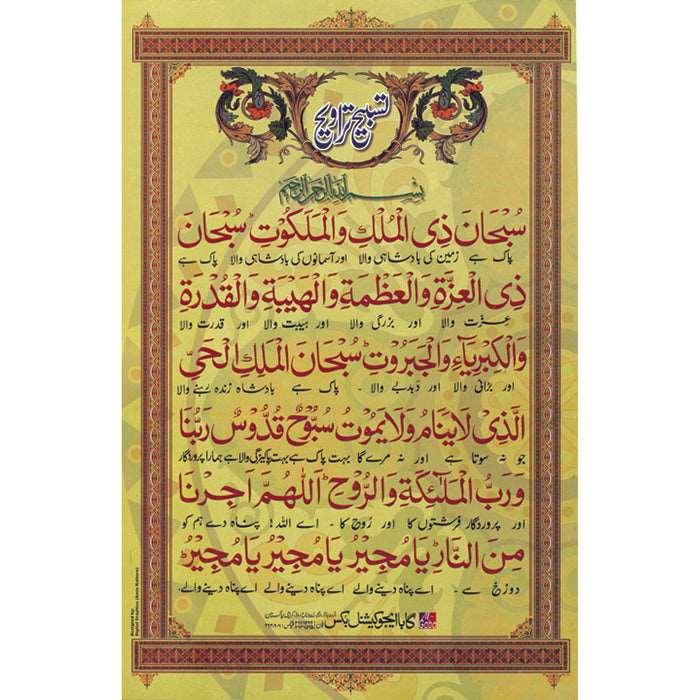 تسبیح تراویح
بسم الله الرحمن الرحيم
سُبْحَانَ ذِى الْمُلْكِ وَالْمَلَكُوْتِ ؕ سُبْحَانَ
پاک ہے زمین کی بادشاہی والا اور آسمانوں کی بادشاہی والا پاک ہے
ذِى الْعِزَّةِ وَالْعَظَمَةِ وَالْهَيْبَةِ وَالْقُدْرَةِ
عزت والا اور بزرگی والا اور ہیبت والا اور قدرت والا
وَالْكِبْرِيَآءِ وَالْجَبَرُوْتِ ؕ سُبْحَانَ الْمَلِكِ الْحَىِّ
اور بڑائی والا اور دبدبے والا ۔ پاک ہے بادشاہ زندہ رہنے والا
الَّذِىْ لَا يَنَامُ وَلَا يَمُوْتُ سُبُّوْحٌ قُدُّوْسٌ رَبُّنَا
جو نہ سوتا ہے اور نہ مرے گا بہت پاک ہے بہت پاکیزگی والا ہے ہمارا پروردگار
وَرَبُّ الْمَلٰٓئِكَةِ وَالرُّوْحِ ؕ اَللّٰهُمَّ اَجِرْنَا
اور پروردگار فرشتوں کا اور رُوح کا ۔ اے اللہ! پناہ دے ہم کو
مِنَ النَّارِ ؕ يَا مُجِيْرُ يَا مُجِيْرُ يَا مُجِيْرُ ؕ
دوزخ سے ۔ اے پناہ دینے والے اے پناہ دینے والے اے پناہ دینے والے۔
گابا ایجوکیشنل بکس